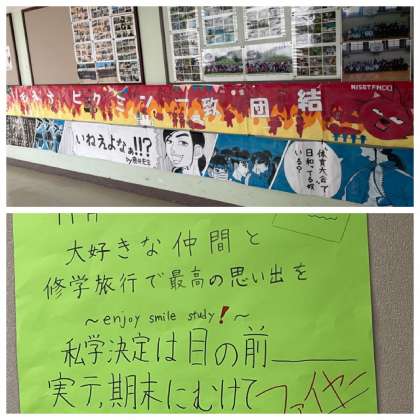 ピクミン一致団結
いねえよなぁ!!?
体育大会で
日和ってる奴
いる?
大好きな仲間と
修学旅行で最高の思い出を
～enjoy smile study!～
私学決定は目の前
実テ,期末にむけてファイヤー